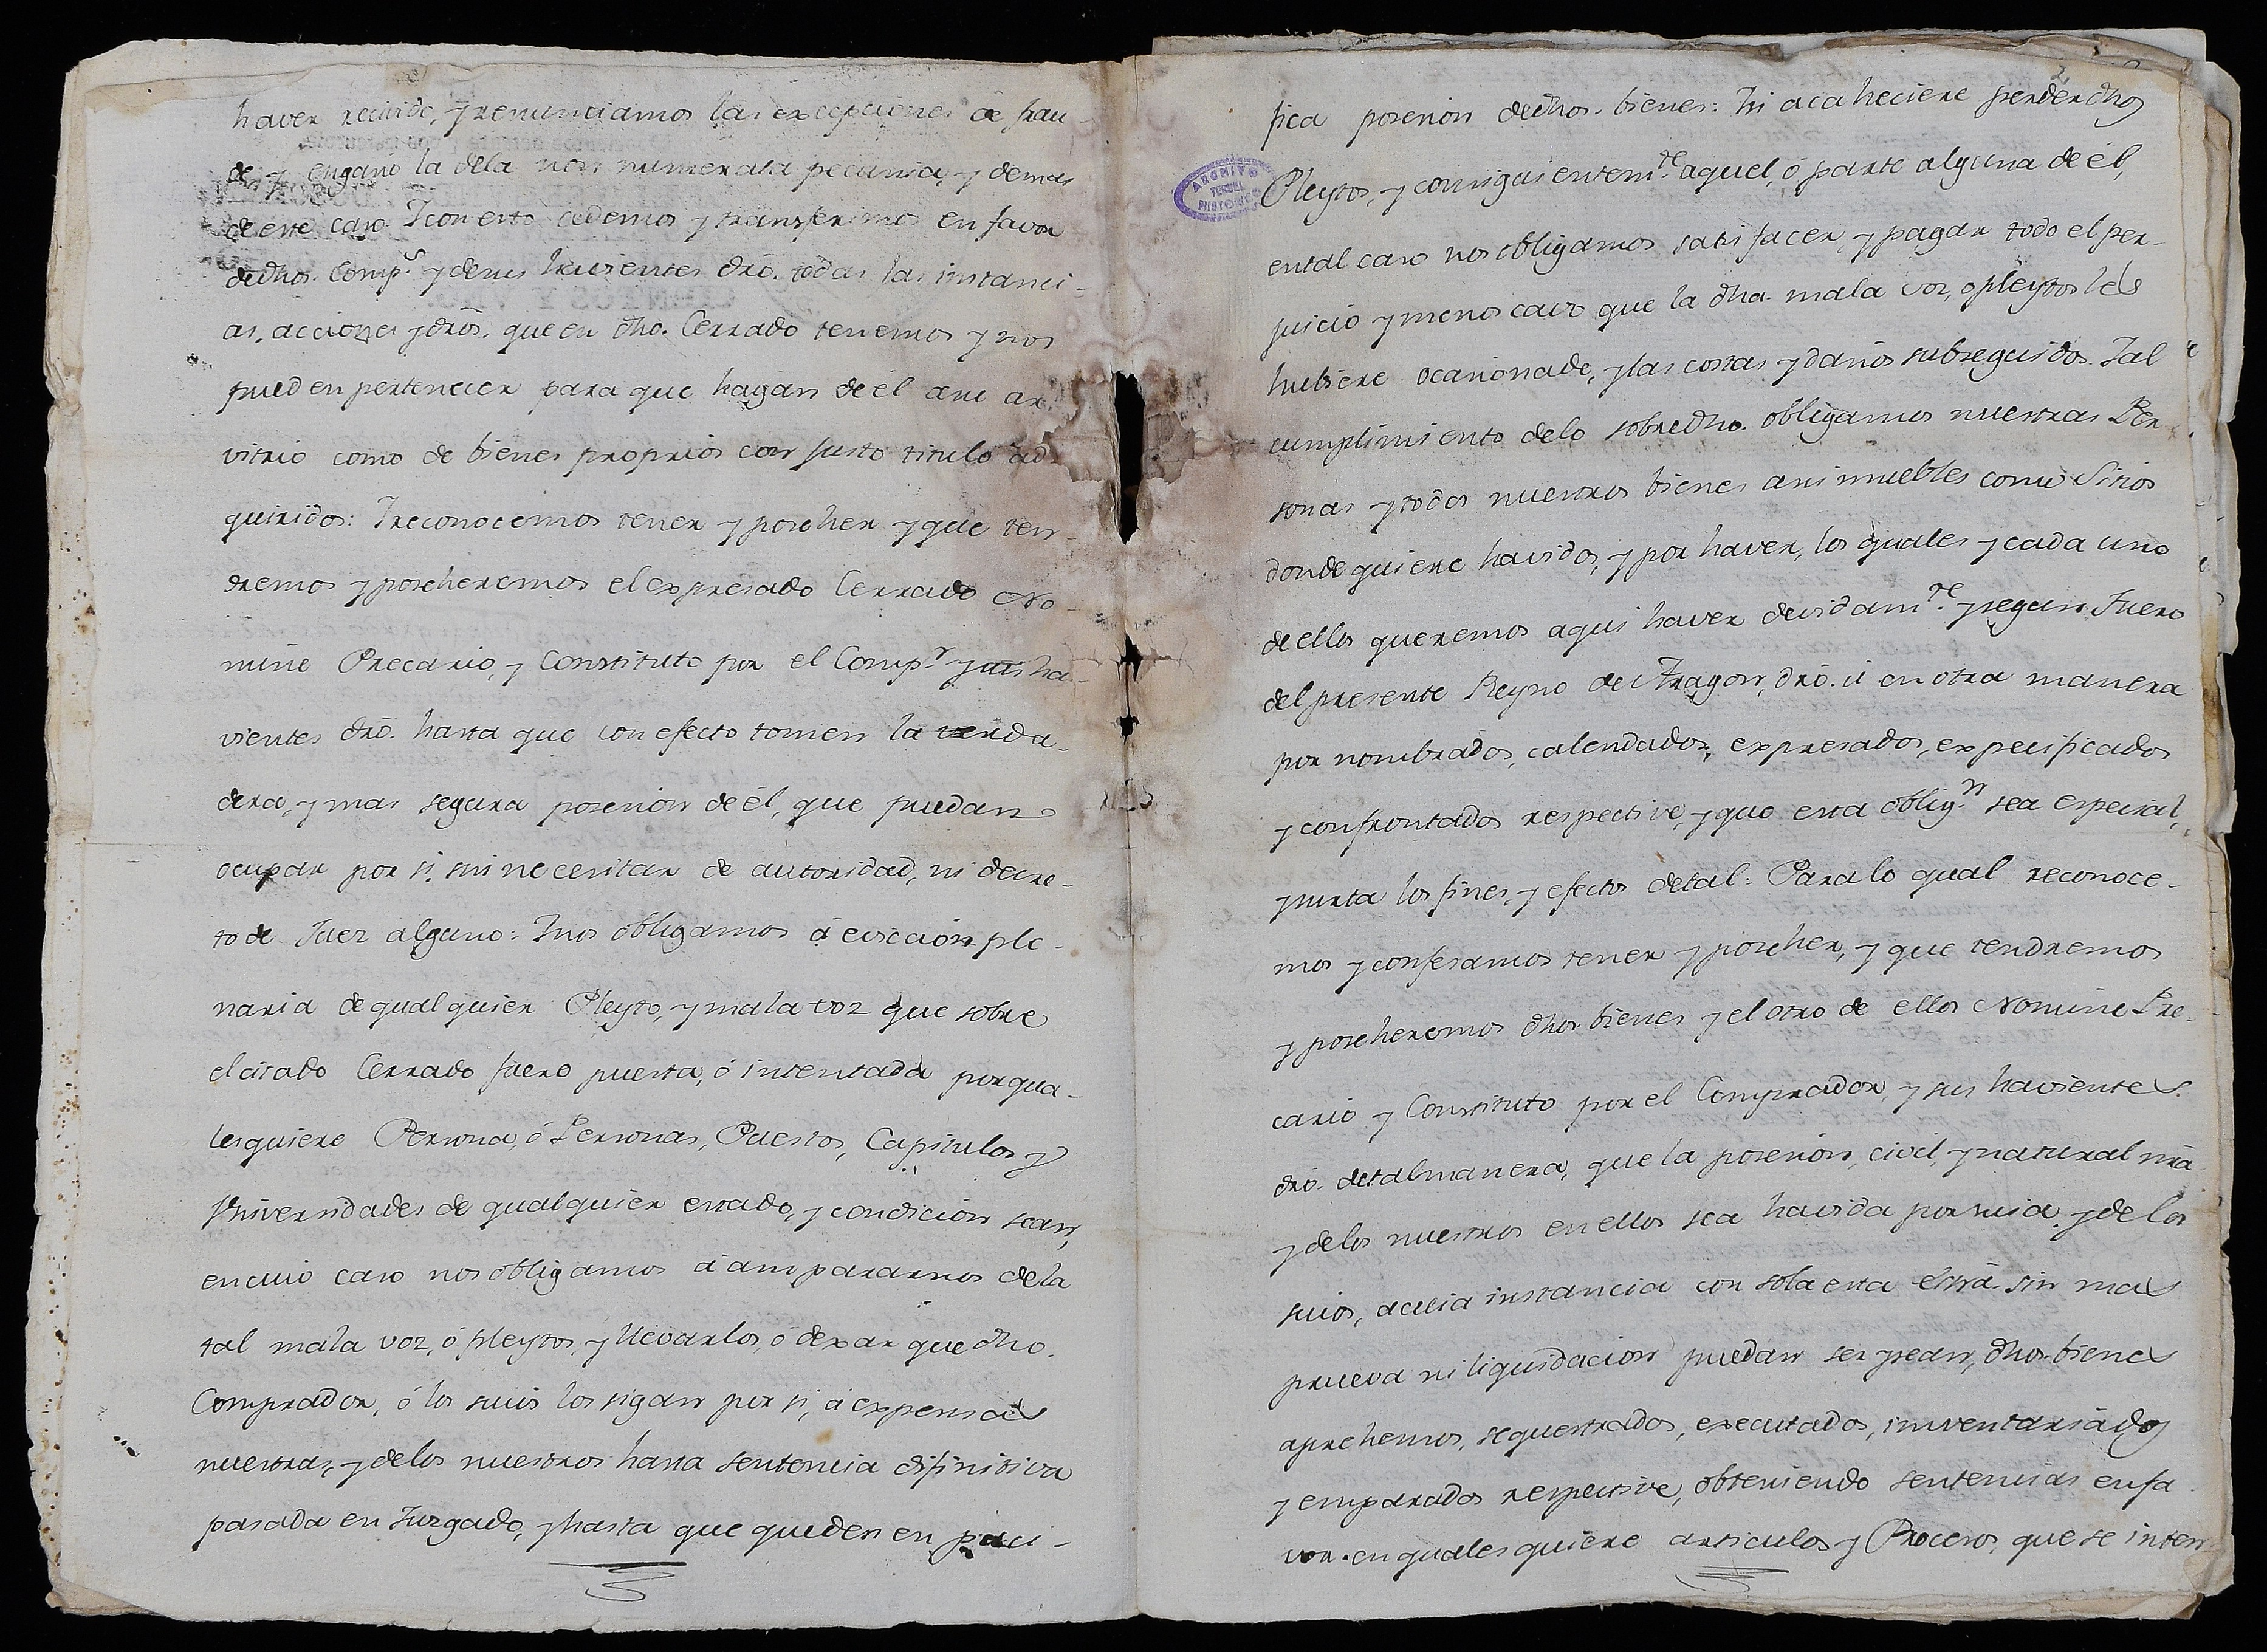 haver recivido, y renunciamos las excepciones de frau-
de y engaño la dela non numerata pecunia, y demas
de este caso. Y con esto cedemos y transferimos en favor
dedhos. Comp.s y demas havientes dro. todas las instanci-
as, acciones y dros. que en dho. Cerrado tenemos y nos
pueden pertenecer para que hagan de él a su ar-
vitrio como de bienes proprios con justo titulo ad-
quiridos: Y reconocemos tener y poseher y que ten-
dremos y poseheremos el expresado Cerrado No-
mine Precario, y Constituto por el Comp.r y sus ha-
vientes dro. hasta que con efecto tomen la verda-
dera, y mas segura posesion de él, que puedan
ocupar por si, sin necesitar de autoridad, ni decre-
to de Juez alguno: Y nos obligamos á eviccion ple-
naria de qualquier Pleyto, y mala voz que sobre
el citado Cerrado fuere puesta, ó intentada por qua-
lesquiere Persona, ó Personas, Puestos, Capitulos y
Universidades de qualquier estado, y condicion sean,
en cuio caso nos obligamos á ampararnos dela
tal mala voz, ó pleytos, y llevarlos, ó dexar que dho.
Comprador, ó los suios los sigan por si, á expensas
nuestras, y delos nuestros hasta sentencia difinitiva
pasada en Juzgado, y hasta que queden en paci-
2
fica posesion de dhos. bienes: Y si acaheciere perder dhos
Pleytos, y consiguientem.te aquel, ó parte alguna de él,
en tal caso nos obligamos satisfacer, y pagar todo el per-
juicio y menoscavo que la dha. mala voz, o pleytos les
hubiere ocasionado, y las costas y daños subseguidos. Y al
cumplimiento delo sobredho. obligamos nuestras Per-
sonas y todos nuestros bienes asi muebles como Sitios
donde quiere havidos, y por haver, los quales y cada uno
de ellos queremos aqui haver devidam.te y segun Fuero
del presente Reyno de Aragon, dro. ú en otra manera
por nombrados, calendados, expresados, expecificados
y confrontados respective, y que esta oblig.n sea especial,
y surta los fines, y efectos detal: Para lo qual reconoce-
mos y confesamos tener y poseher, y que tendremos
y poseheremos dhos. bienes y el otro de ellos Nomine Pre-
cario y Constituto por el Comprador, y sus havientes
dro. detal manera, que la posesion, civil, y natural nra
y delos nuestros en ellos sea havida por suia, y delos
suios, a cuia instancia con sola esta Essra. sin mas
prueva ni liquidacion puedan ser y sean, dhos. bienes
aprehensos, sequestrados, executados, inventariados
y emparados respective, obteniendo sentencias en fa-
vor. en qualesquiere articulos y Procesos, que se inten
ARCHIVO
TERUEL
HISTORICO